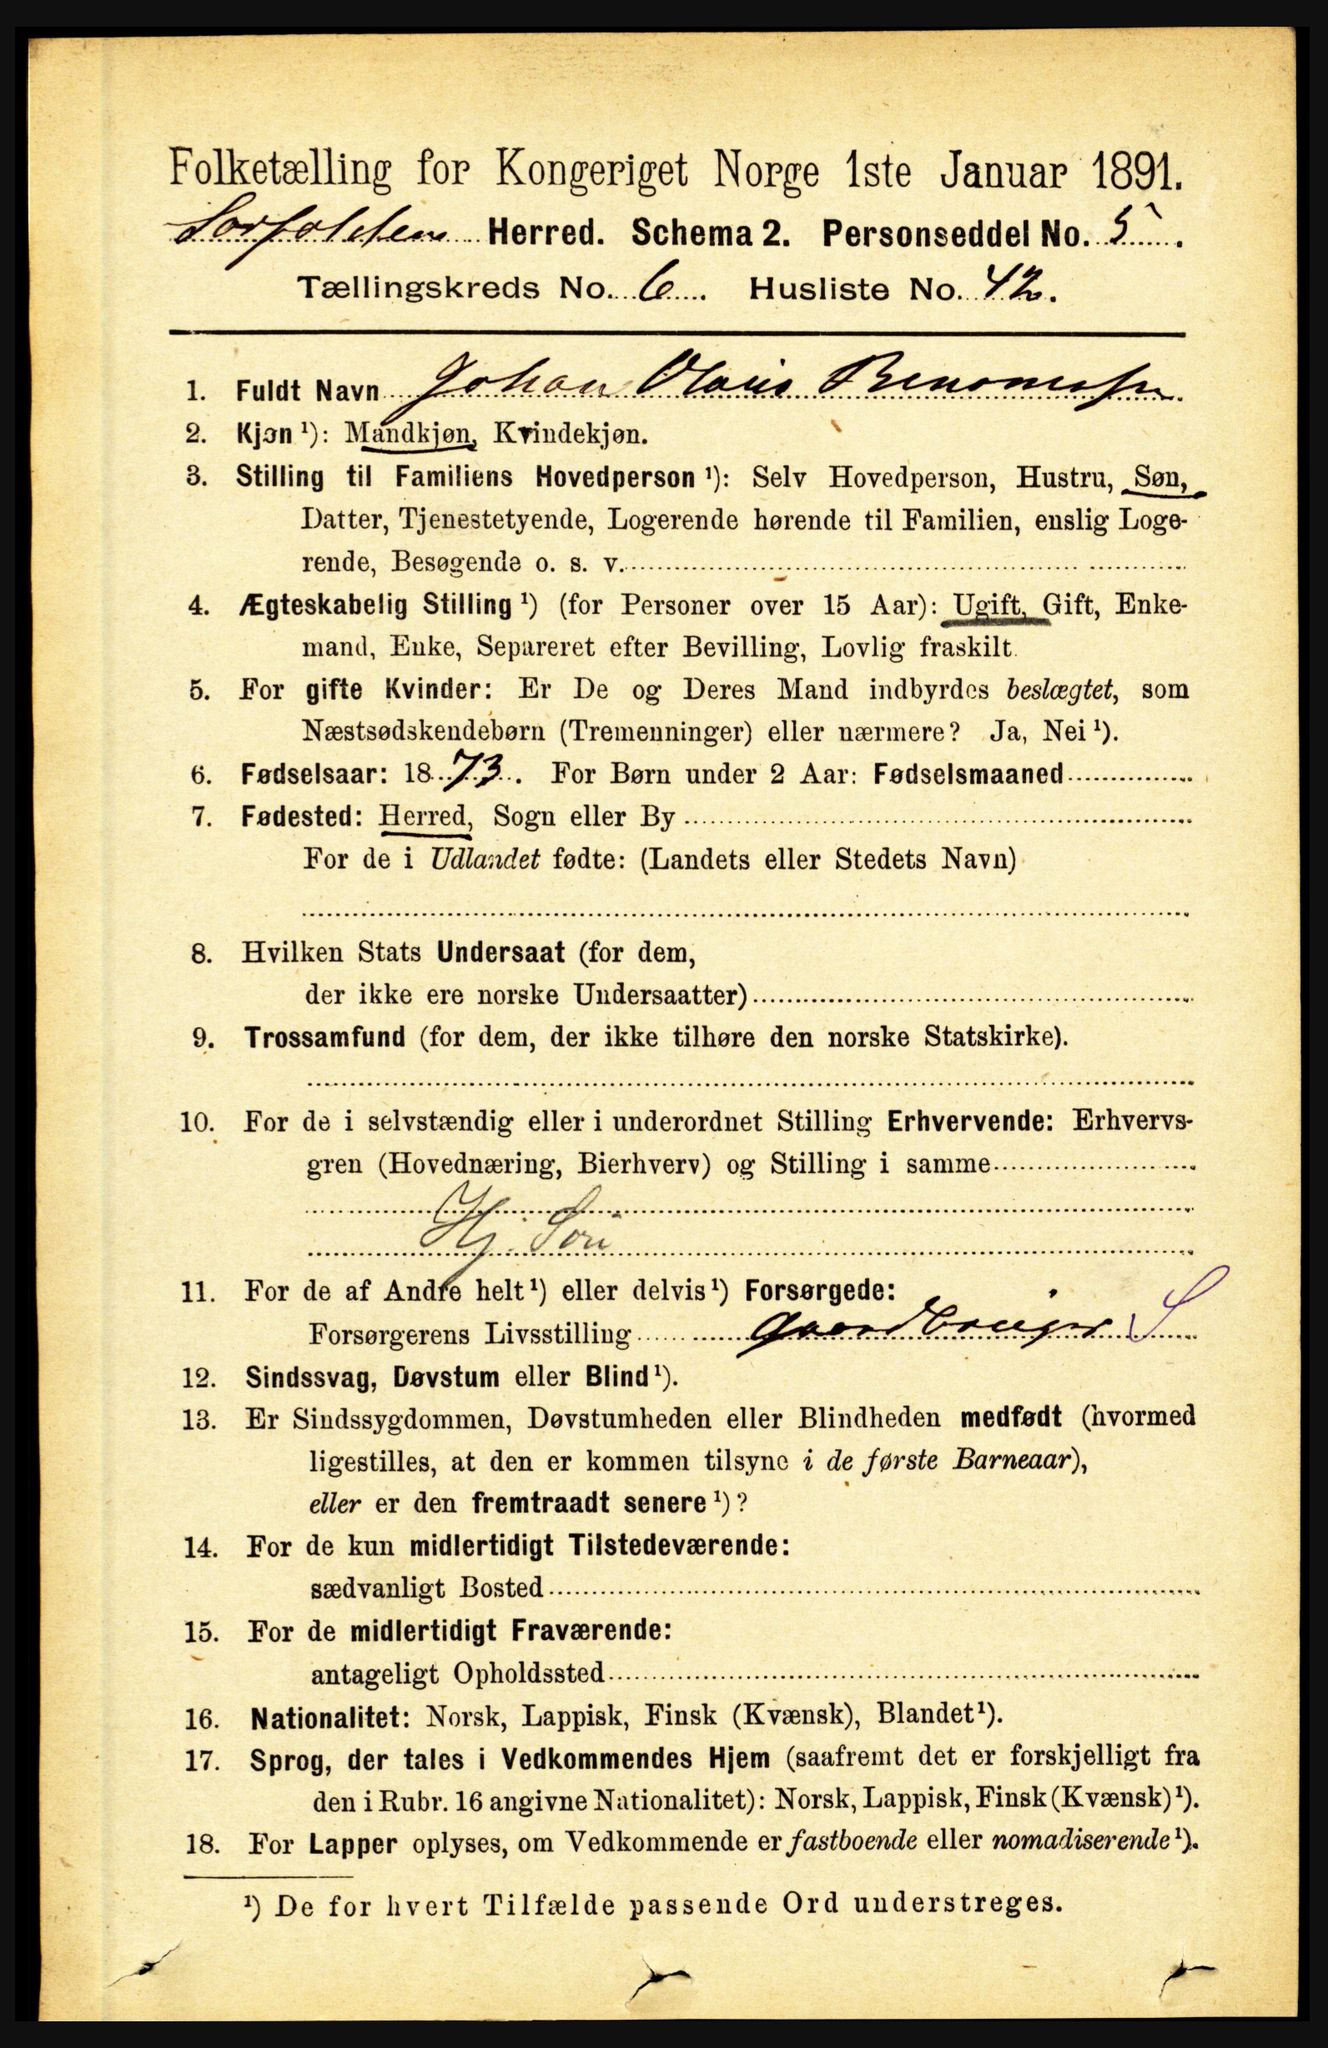 Folketælling for Kongeriget Norge 1ste Januar 1891.
Sørfolden Herred. Schema 2. Personseddel No. 5.
Tællingskreds No. 6. Husliste No. 42.
1. Fuldt Navn Johan Olaus
2. Kjøn ¹): Mandkjøn, Kvindekjøn.
3. Stilling til Familiens Hovedperson ¹): Selv Hovedperson, Hustru, Søn,
Datter, Tjenestetyende, Logerende hørende til Familien, enslig Loge-
rende, Besøgende o. s. v.
4. Ægteskabelig Stilling ¹) (for Personer over 15 Aar): Ugift, Gift, Enke-
mand, Enke, Separeret efter Bevilling, Lovlig fraskilt.
5. For gifte Kvinder: Er De og Deres Mand indbyrdes beslægtet, som
Næstsødskendebørn (Tremenninger) eller nærmere? Ja, Nei ¹).
6. Fødselsaar: 1873. For Børn under 2 Aar: Fødselsmaaned
7. Fødested: Herred, Sogn eller By
For de i Udlandet fødte: (Landets eller Stedets Navn)
8. Hvilken Stats Undersaat (for dem,
der ikke ere norske Undersaatter)
9. Trossamfund (for dem, der ikke tilhøre den norske Statskirke).
10. For de i selvstændig eller i underordnet Stilling Erhvervende: Erhvervs-
gren (Hovednæring, Bierhverv) og Stilling i samme
Hj. Søn
11. For de af Andre helt ¹) eller delvis ¹) Forsørgede:
Forsørgerens Livsstilling Gaardbruger S
12. Sindssvag, Døvstum eller Blind ¹).
13. Er Sindssygdommen, Døvstumheden eller Blindheden medfødt (hvormed
ligestilles, at den er kommen tilsyne i de første Barneaar),
eller er den fremtraadt senere ¹)?
14. For de kun midlertidigt Tilstedeværende:
sædvanligt Bosted
15. For de midlertidigt Fraværende:
antageligt Opholdssted
16. Nationalitet: Norsk, Lappisk, Finsk (Kvænsk), Blandet ¹).
17. Sprog, der tales i Vedkommendes Hjem (saafremt det er forskjelligt fra
den i Rubr. 16 angivne Nationalitet): Norsk, Lappisk, Finsk (Kvænsk) ¹).
18. For Lapper oplyses, om Vedkommende er fastboende eller nomadiserende ¹).
¹) De for hvert Tilfælde passende Ord understreges.